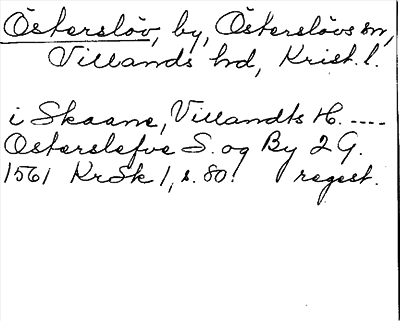 Östersløv, by, Östersløvs sn,
Villands hd, Krist. l.
i Skaane, Villandts H. ----
Osterslefve S. og By 2 G.
1561 KrSk 1, s. 80. regest.